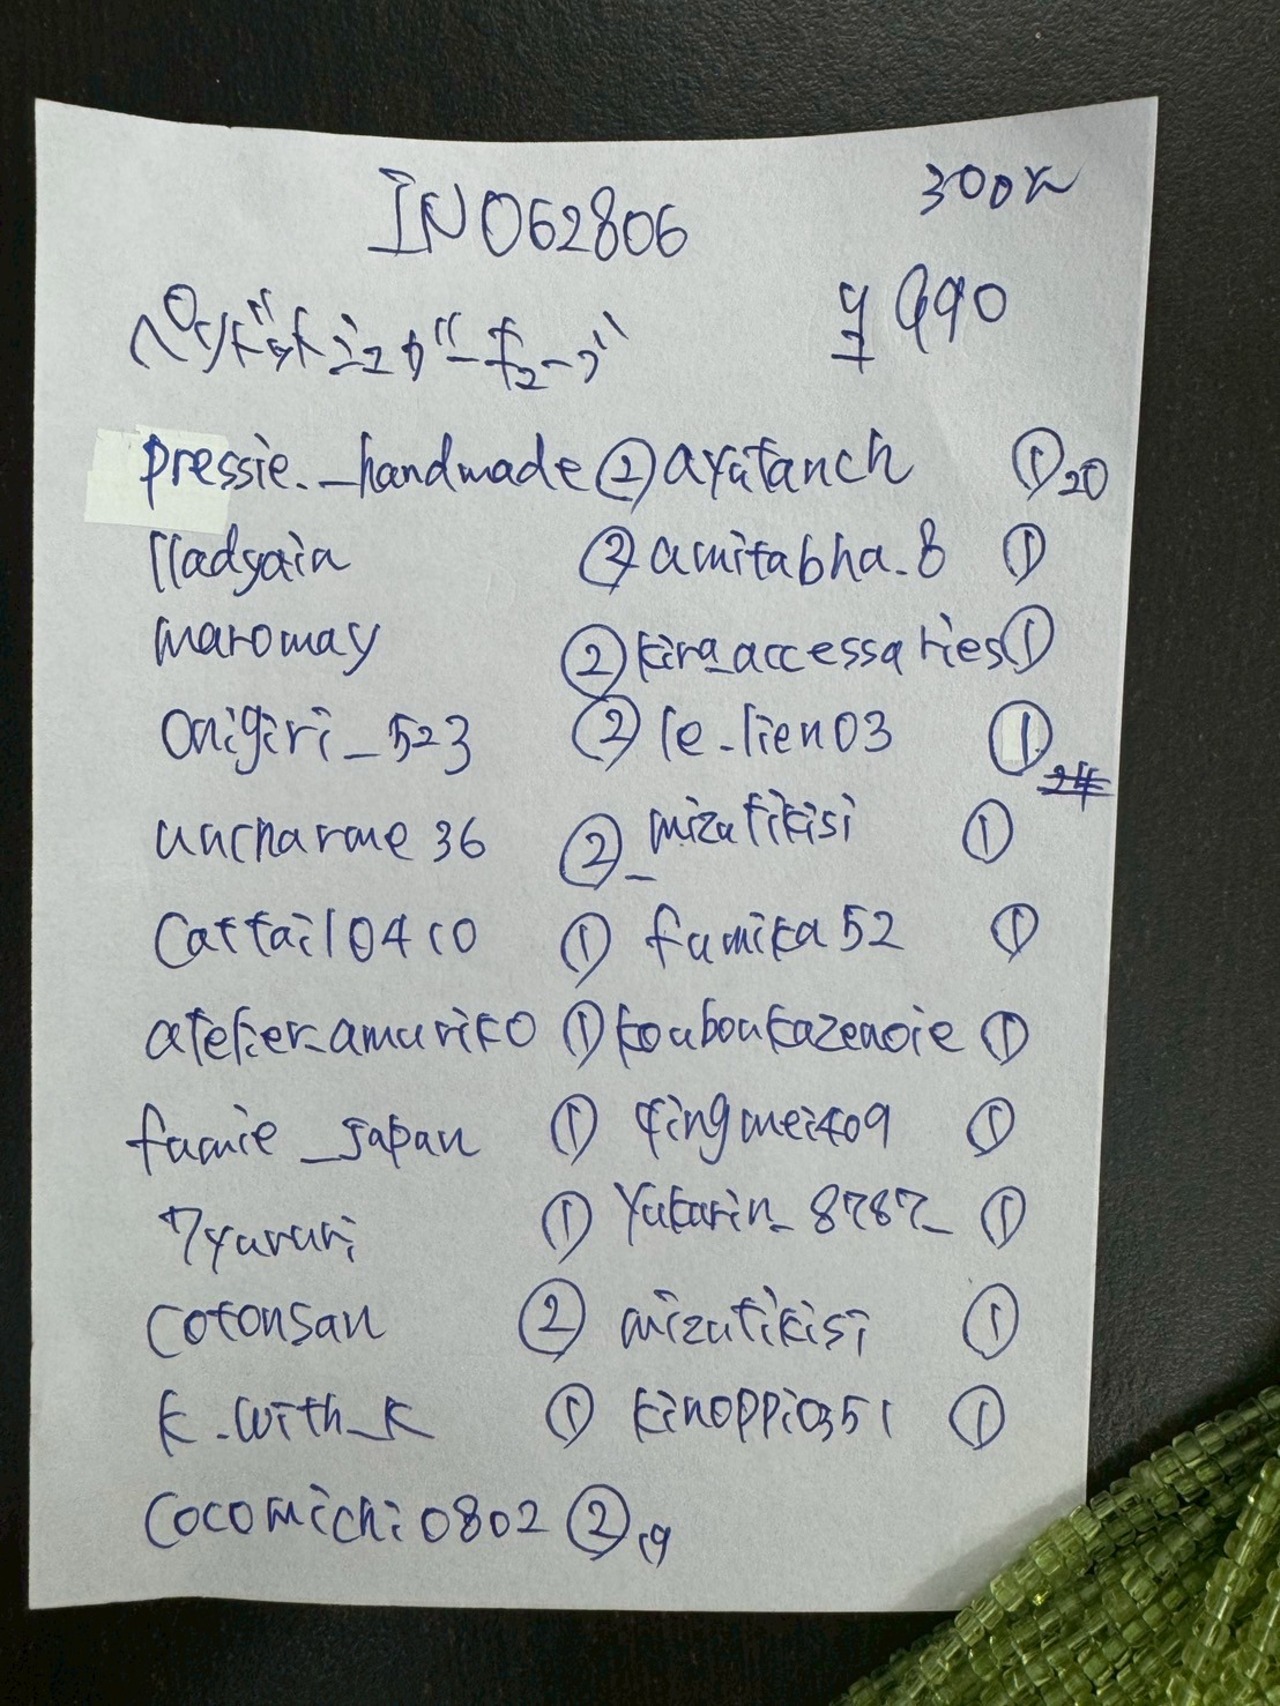 IN062806 300本
ペリドットミニカガーキューブ ¥990
pressie._handmade ② ayutanch ① 20
lladyain ② amitabha.8 ①
maromay ② kira_accessaries ①
onigiri_523 ② le_lien03 ①
uncharme36 ② _mizutikisi ①
cattail0410 ① fumika52 ①
atelier_amuriko ① kouboukazenoie ①
fumie_japan ① qingmei409 ①
7yururi ① yukarin_8787_ ①
cotonsan ② mizutikisi ①
k_with_k ① kinoppi0351 ①
cocomichi0802 ② 19